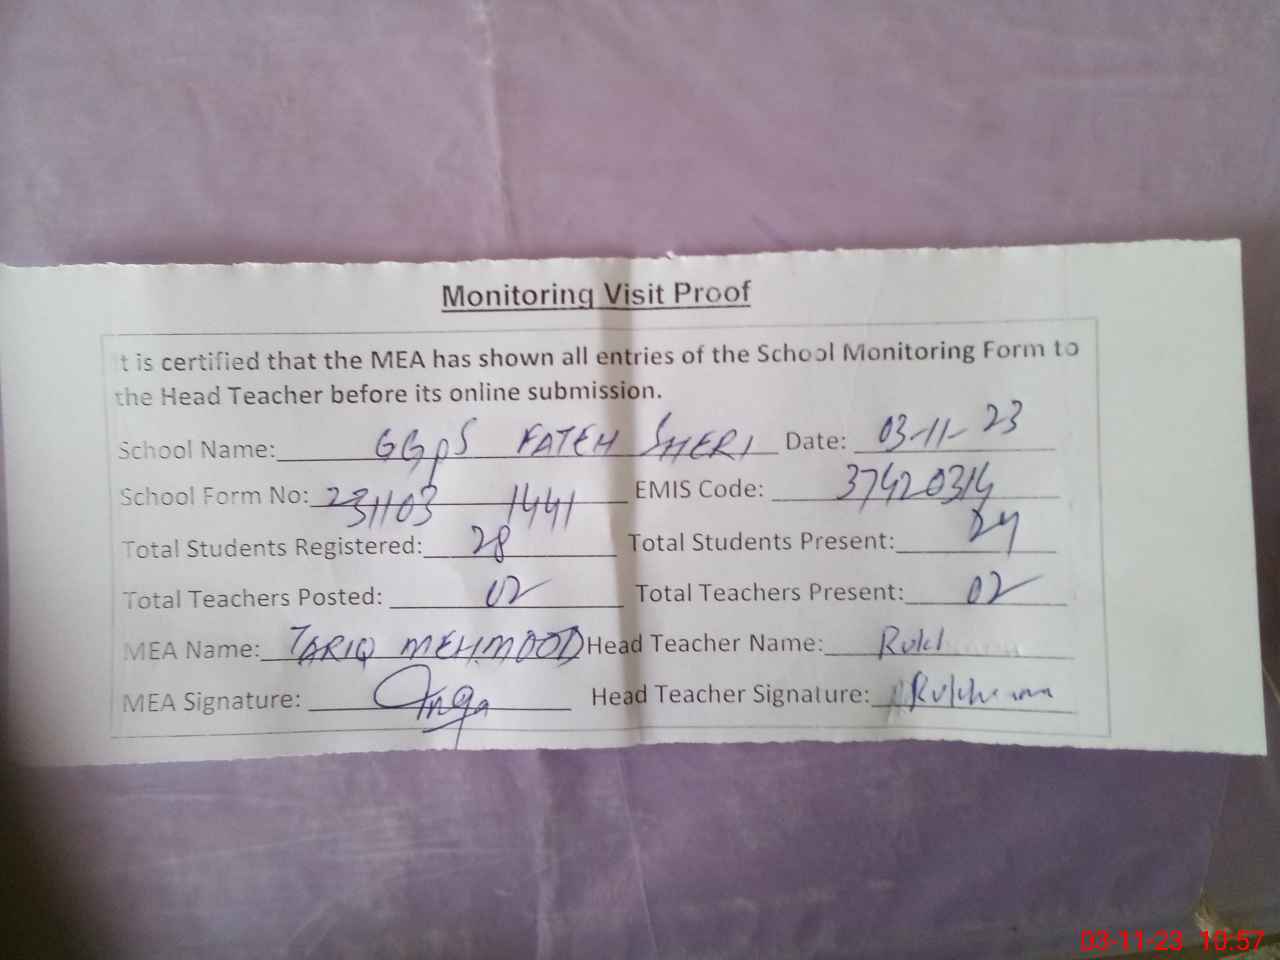 Monitoring Visit Proof
t is certified that the MEA has shown all entries of the School Monitoring Form to
the Head Teacher before its online submission.
School Name: GGPS FATEH SHERI Date: 03-11-23
School Form No: 231103 1441 EMIS Code: 37420314
Total Students Registered: 28 Total Students Present: 24
Total Teachers Posted: 02 Total Teachers Present: 02
MEA Name: TARIQ MEHMOOD Head Teacher Name:
MEA Signature: Head Teacher Signature:
03-11-23 10:57